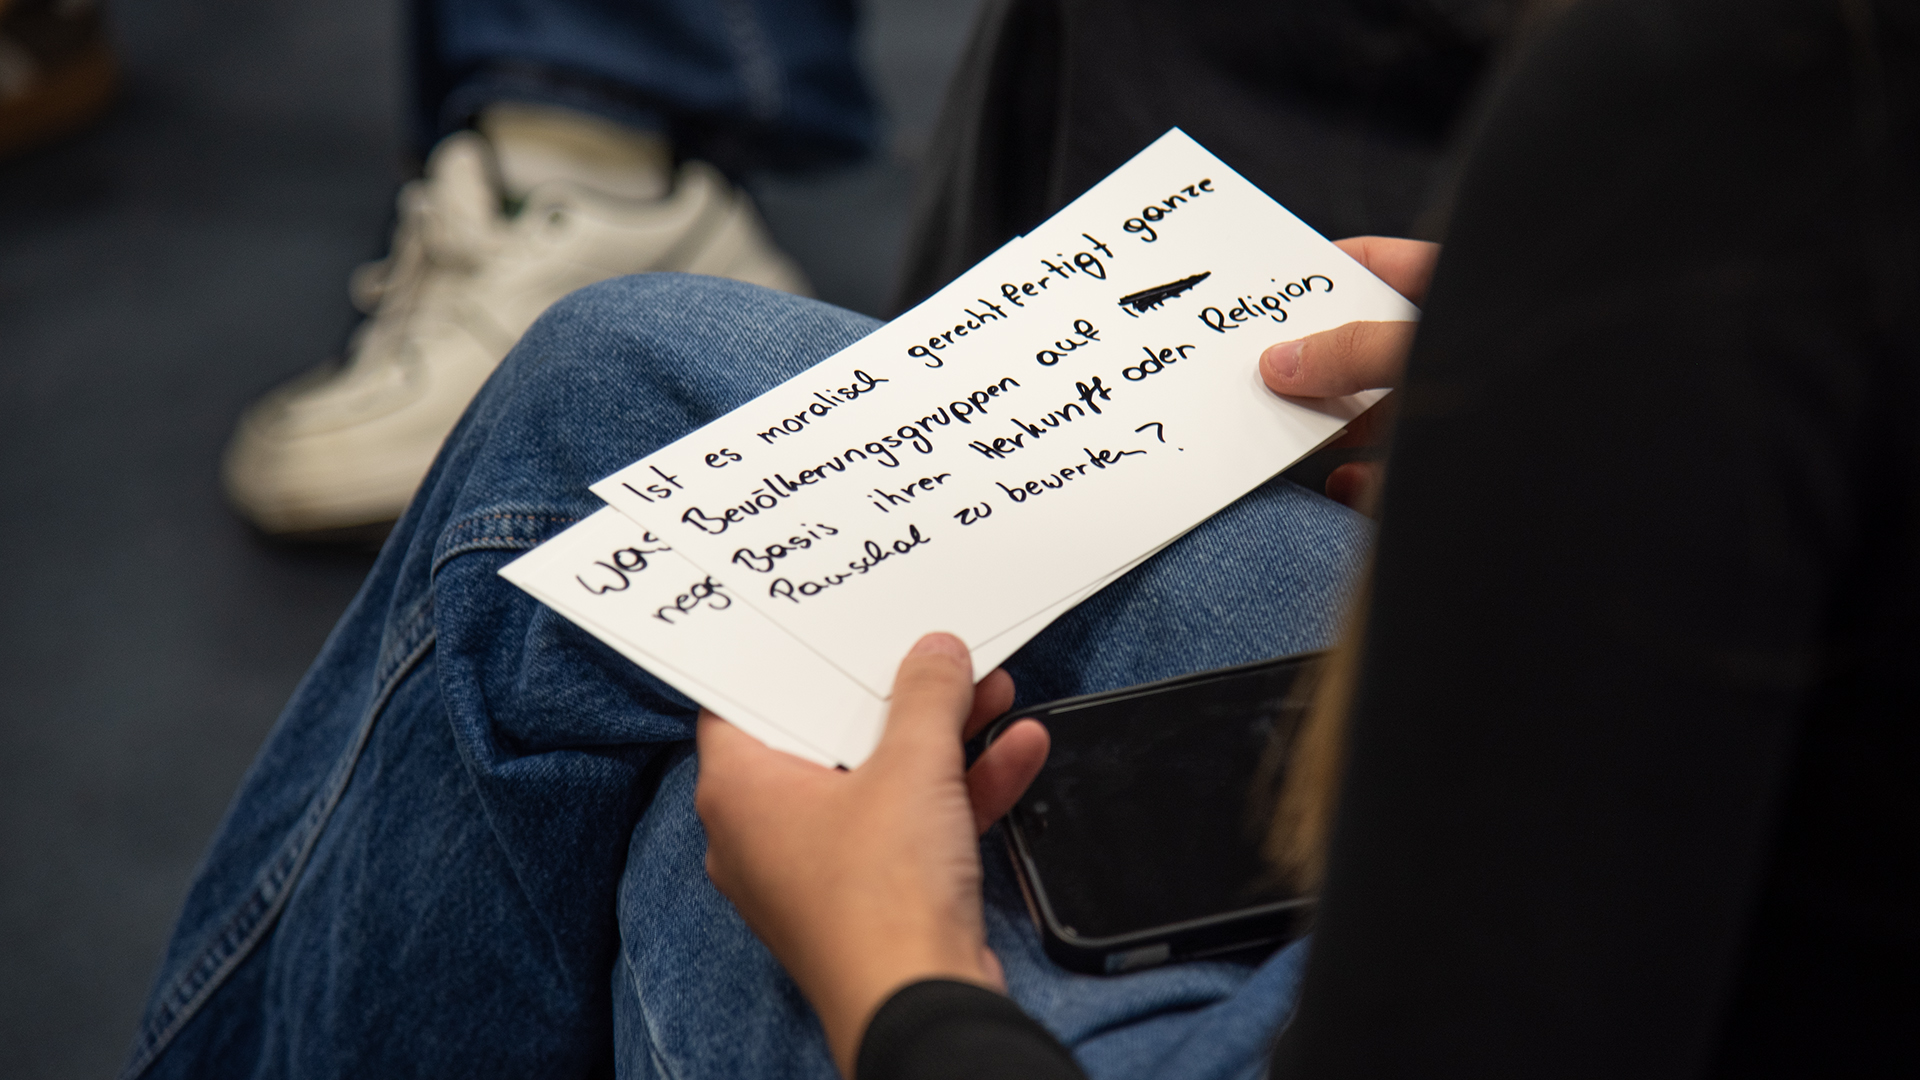 Ist es moralisch gerechtfertigt ganze
Bevölkerungsgruppen auf
Basis ihrer Herkunft oder Religion
Pauschal zu bewerten?
Was